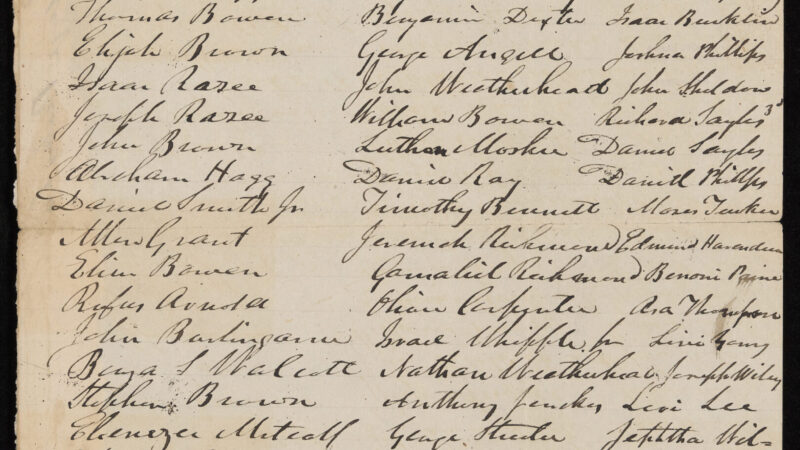 Thomas Bowen Benjamin Dexter Isaac Bucklin
Elijah Brown George Angell Joshua Phillips
Isaac Razee John Weatherhead John Sheldon
Joseph Razee William Bowen Richard Sayles 3d
John Brown Luther Mosher Daniel Sayles
Abraham Hagg Daniel Ray Daniel Phillips
Daniel Smith Jr Timothy Bennett Moses Tucker
Allen Grant Jeremiah Richmond Edmund
Bowen Gamaliel Richmond Benoni Paine
Rufus Arnold Carpenter Asa Thompson
John Burlingame Israel Whipple Jr Levi Young
Benja S Walcott Nathan Weatherhead Joseph
Stephen Brown Anthony Jenckes Levi Lee
Ebenezer Metcalf George Jephtha Wil-